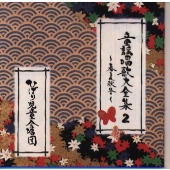 童謡唱歌大全集2
～春夏秋冬～
ひばり児童合唱団